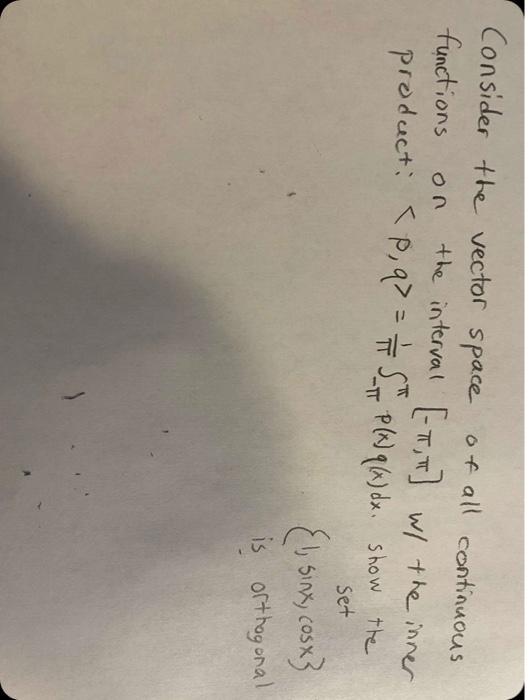 Consider the vector space of all continuous
functions on the interval [-π,π] w/ the inner
product: <p,q> = 1/π ∫_-π^π p(x)q(x)dx. show the
set
{1, sinx, cosx}
is orthogonal